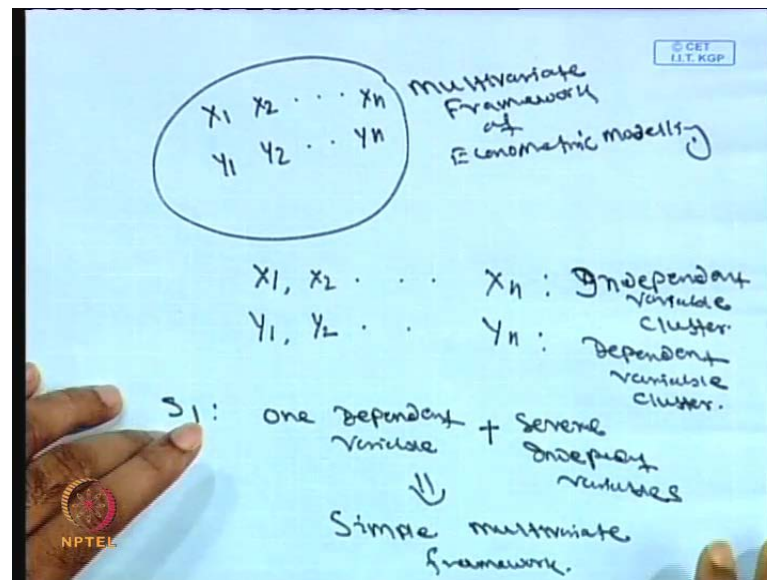 © CET
I.I.T. KGP
X1 X2 . . . Xn
Y1 Y2 . . Yn
Multivariate
Framework
of
Econometric Modelling
X1, X2 . . . Xn : Independent
variable
cluster.
Y1, Y2 . . Yn : Dependent
variable
cluster.
S1: one Dependent + Several
variable Independent
variables
⇓
Simple multivariate
framework.
NPTEL